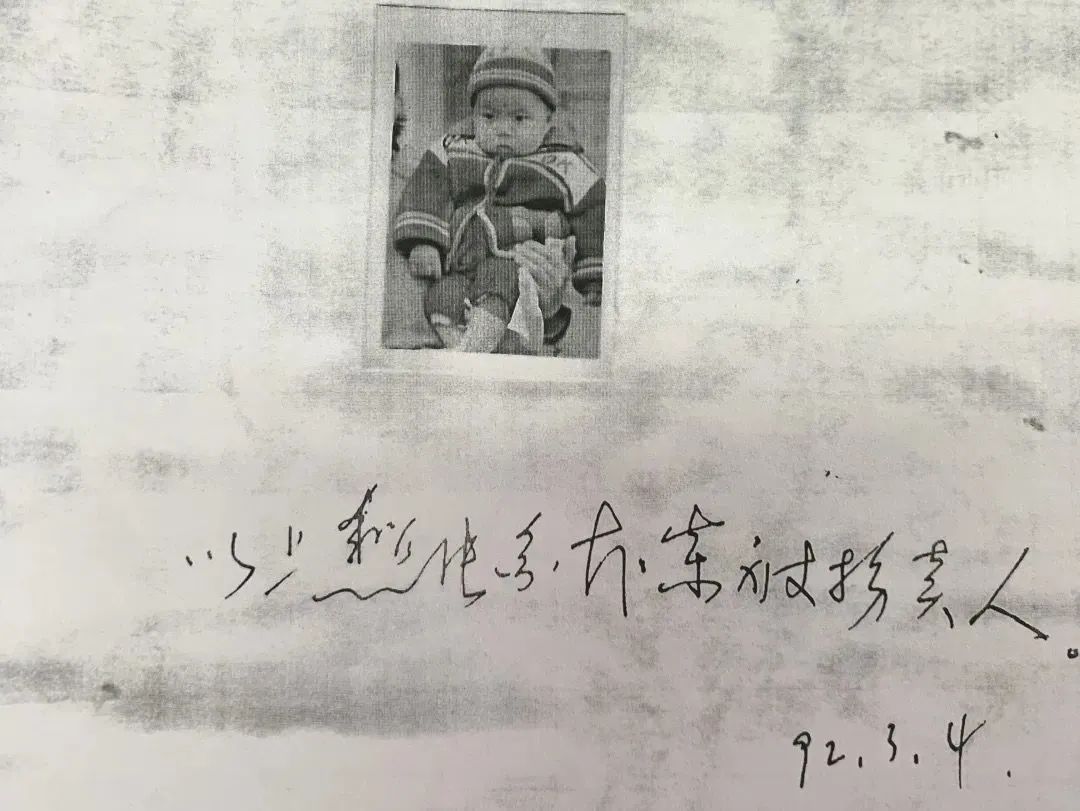 以上照张系本案被拐卖人。
92.3.4.